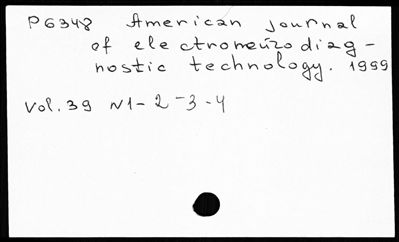 P6348 American journal
of electroneurodiag-
nostic technology. 1999
Vol. 39 N1-2-3-4